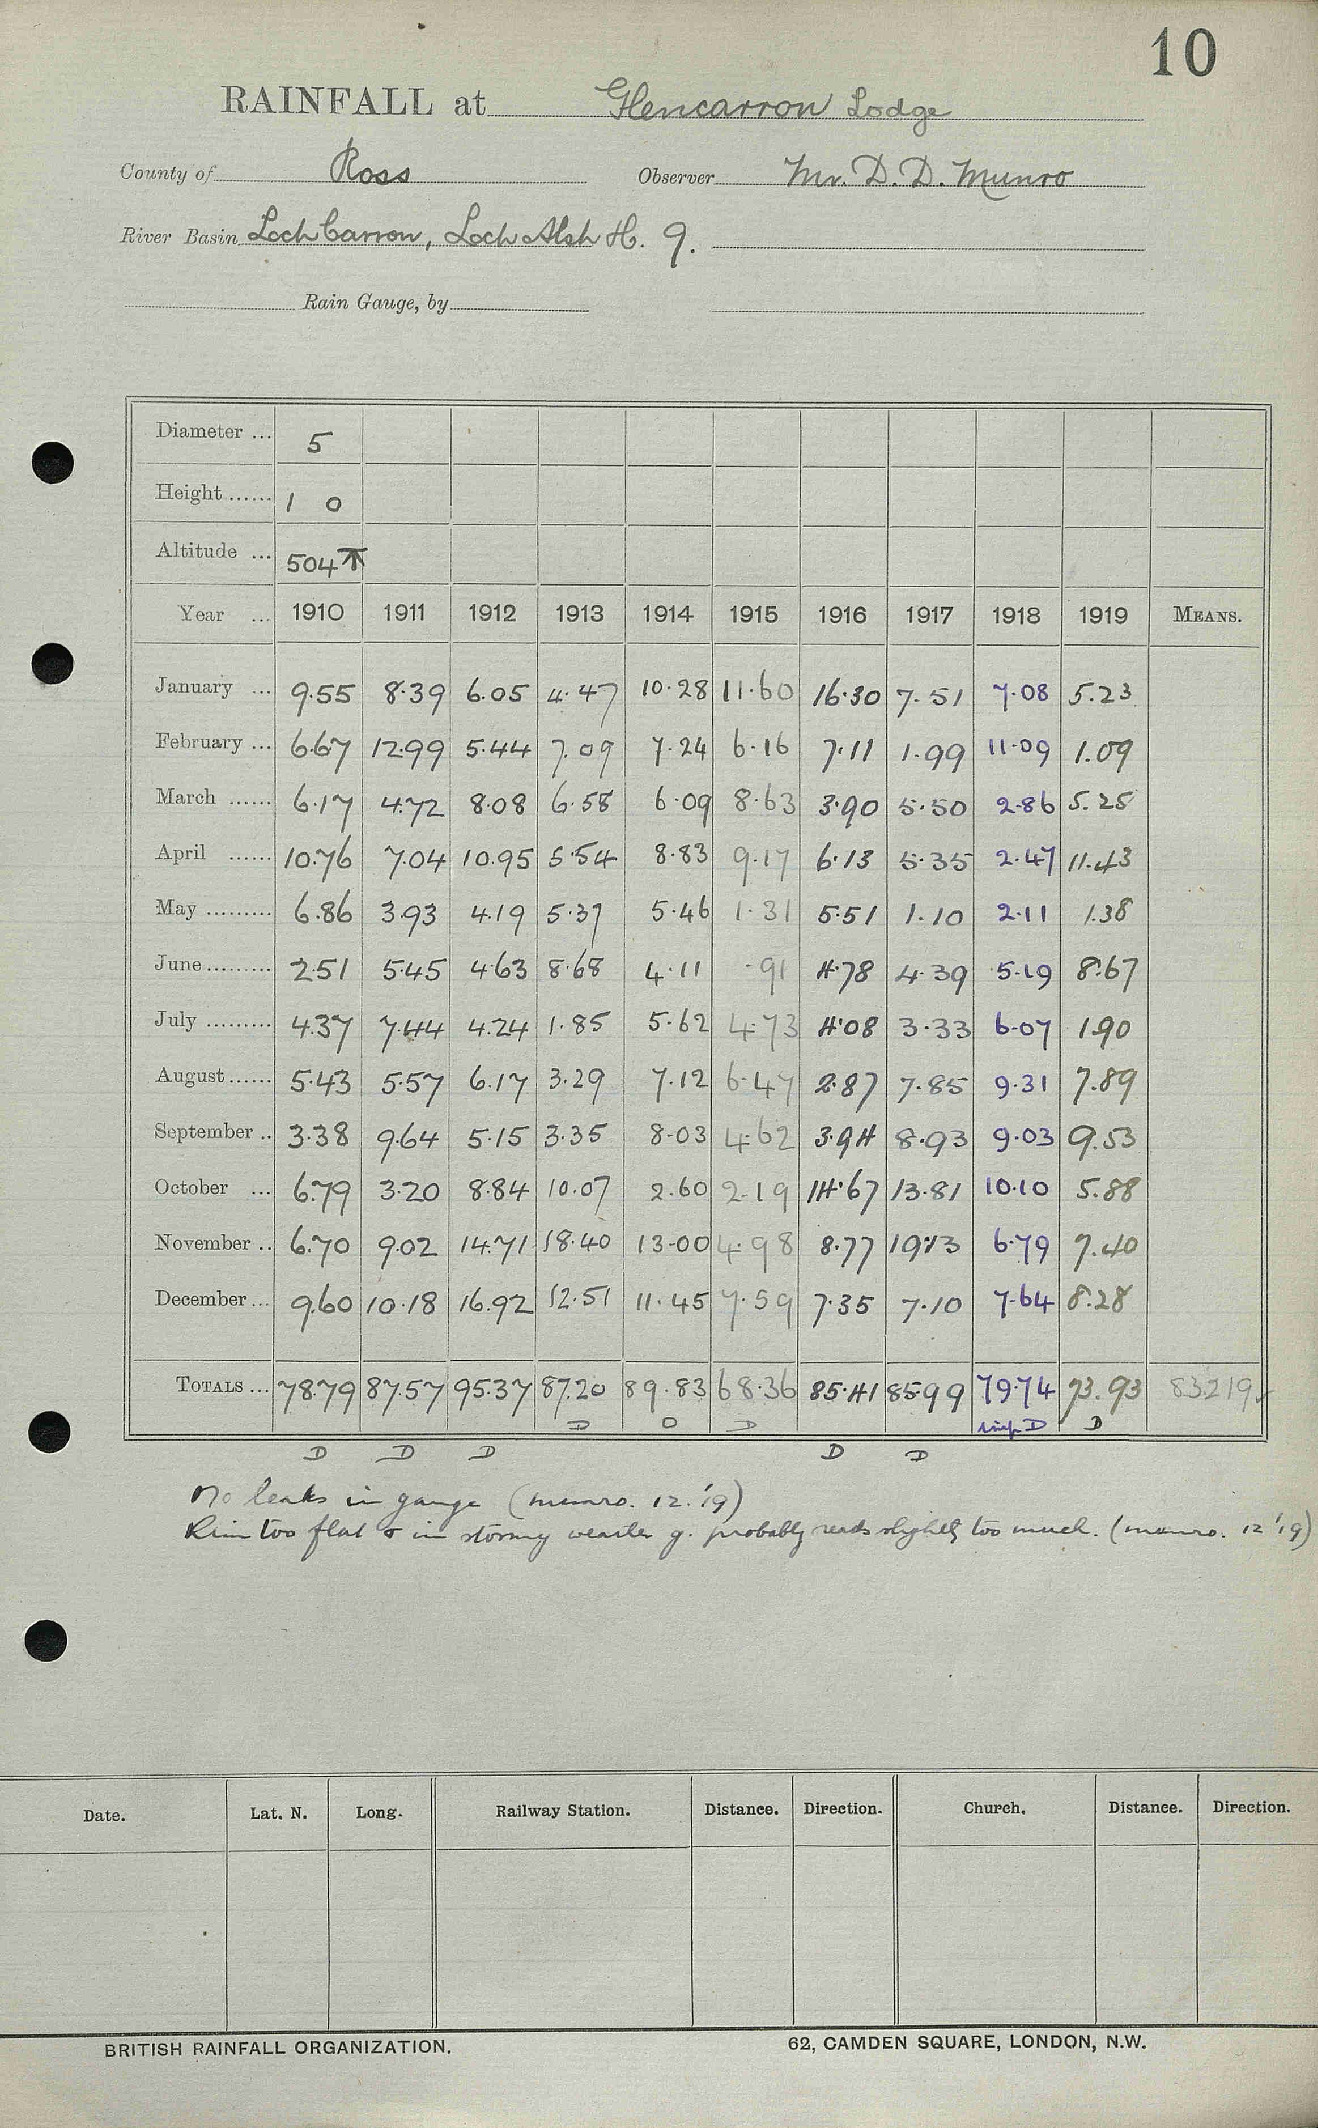 10
RAINFALL at Glencarron Lodge
County of Ross Observer Mr. D. D. Munro
River Basin Loch Carron, Loch Alsh H. 9.
Rain Gauge, by
Diameter ... 5
Height ...... 1 0
Altitude ... 504 T
Year ... 1910 1911 1912 1913 1914 1915 1916 1917 1918 1919 MEANS.
January ... 9.55 8.39 6.05 4.47 10.28 11.60 16.30 7.51 7.08 5.23
February ... 6.67 12.99 5.44 7.09 7.24 6.16 7.11 1.99 11.09 1.09
March ...... 6.17 4.72 8.08 6.58 6.09 8.63 3.90 5.50 2.86 5.25
April ...... 10.76 7.04 10.95 5.54 8.83 9.17 6.13 5.35 2.47 11.43
May ......... 6.86 3.93 4.19 5.37 5.46 1.31 5.51 1.10 2.11 1.38
June ......... 2.51 5.45 4.63 8.68 4.11 .91 4.78 4.39 5.19 8.67
July ......... 4.37 7.44 4.24 1.85 5.62 4.73 4.08 3.33 6.07 1.90
August ...... 5.43 5.57 6.17 3.29 7.12 6.47 2.87 7.85 9.31 7.89
September .. 3.38 9.64 5.15 3.35 8.03 4.62 3.94 8.93 9.03 9.53
October ... 6.79 3.20 8.84 10.07 2.60 2.19 14.67 13.81 10.10 5.88
November .. 6.70 9.02 14.71 18.40 13.00 4.98 8.77 19.13 6.79 7.40
December ... 9.60 10.18 16.92 12.51 11.45 7.59 7.35 7.10 7.64 8.28
TOTALS ... 78.79 87.57 95.37 87.20 89.83 68.36 85.41 85.99 79.74 73.93 83219
D D D D D
D D D D D
No leaks in gauge (Munro. 12.'19)
Rim too flat & in stormy weather g. probably reads slightly too much. (Munro. 12 '19)
Date. Lat. N. Long. Railway Station. Distance. Direction. Church. Distance. Direction.
BRITISH RAINFALL ORGANIZATION. 62, CAMDEN SQUARE, LONDON, N.W.